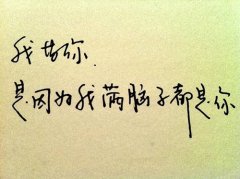 我苦
是因为我满脑子都是你